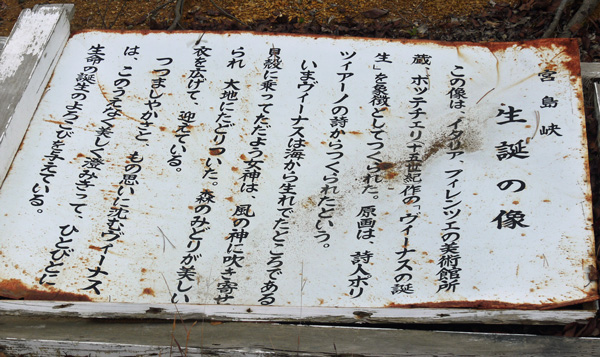 宮島峡
生誕の像
この像は、イタリア、フィレンツェの美術館所
蔵、ボッテチェリ十五世紀作の「ヴィーナスの誕
生」を象徴としてつくられた。原画は、詩人ポリ
ツィアーノの詩からつくられたという。
いまヴィーナスは海から生れでたところである
貝殻に乗ってただよう女神は、風の神に吹き寄せ
られ 大地にたどりついた。森のみどりが美しい
衣を広げて、迎えている。
つつましやかにと、もの思いに沈むヴィーナス
は、このうえなく美しく澄みきって、ひとびとに
生命の誕生のよろこびを与えている。